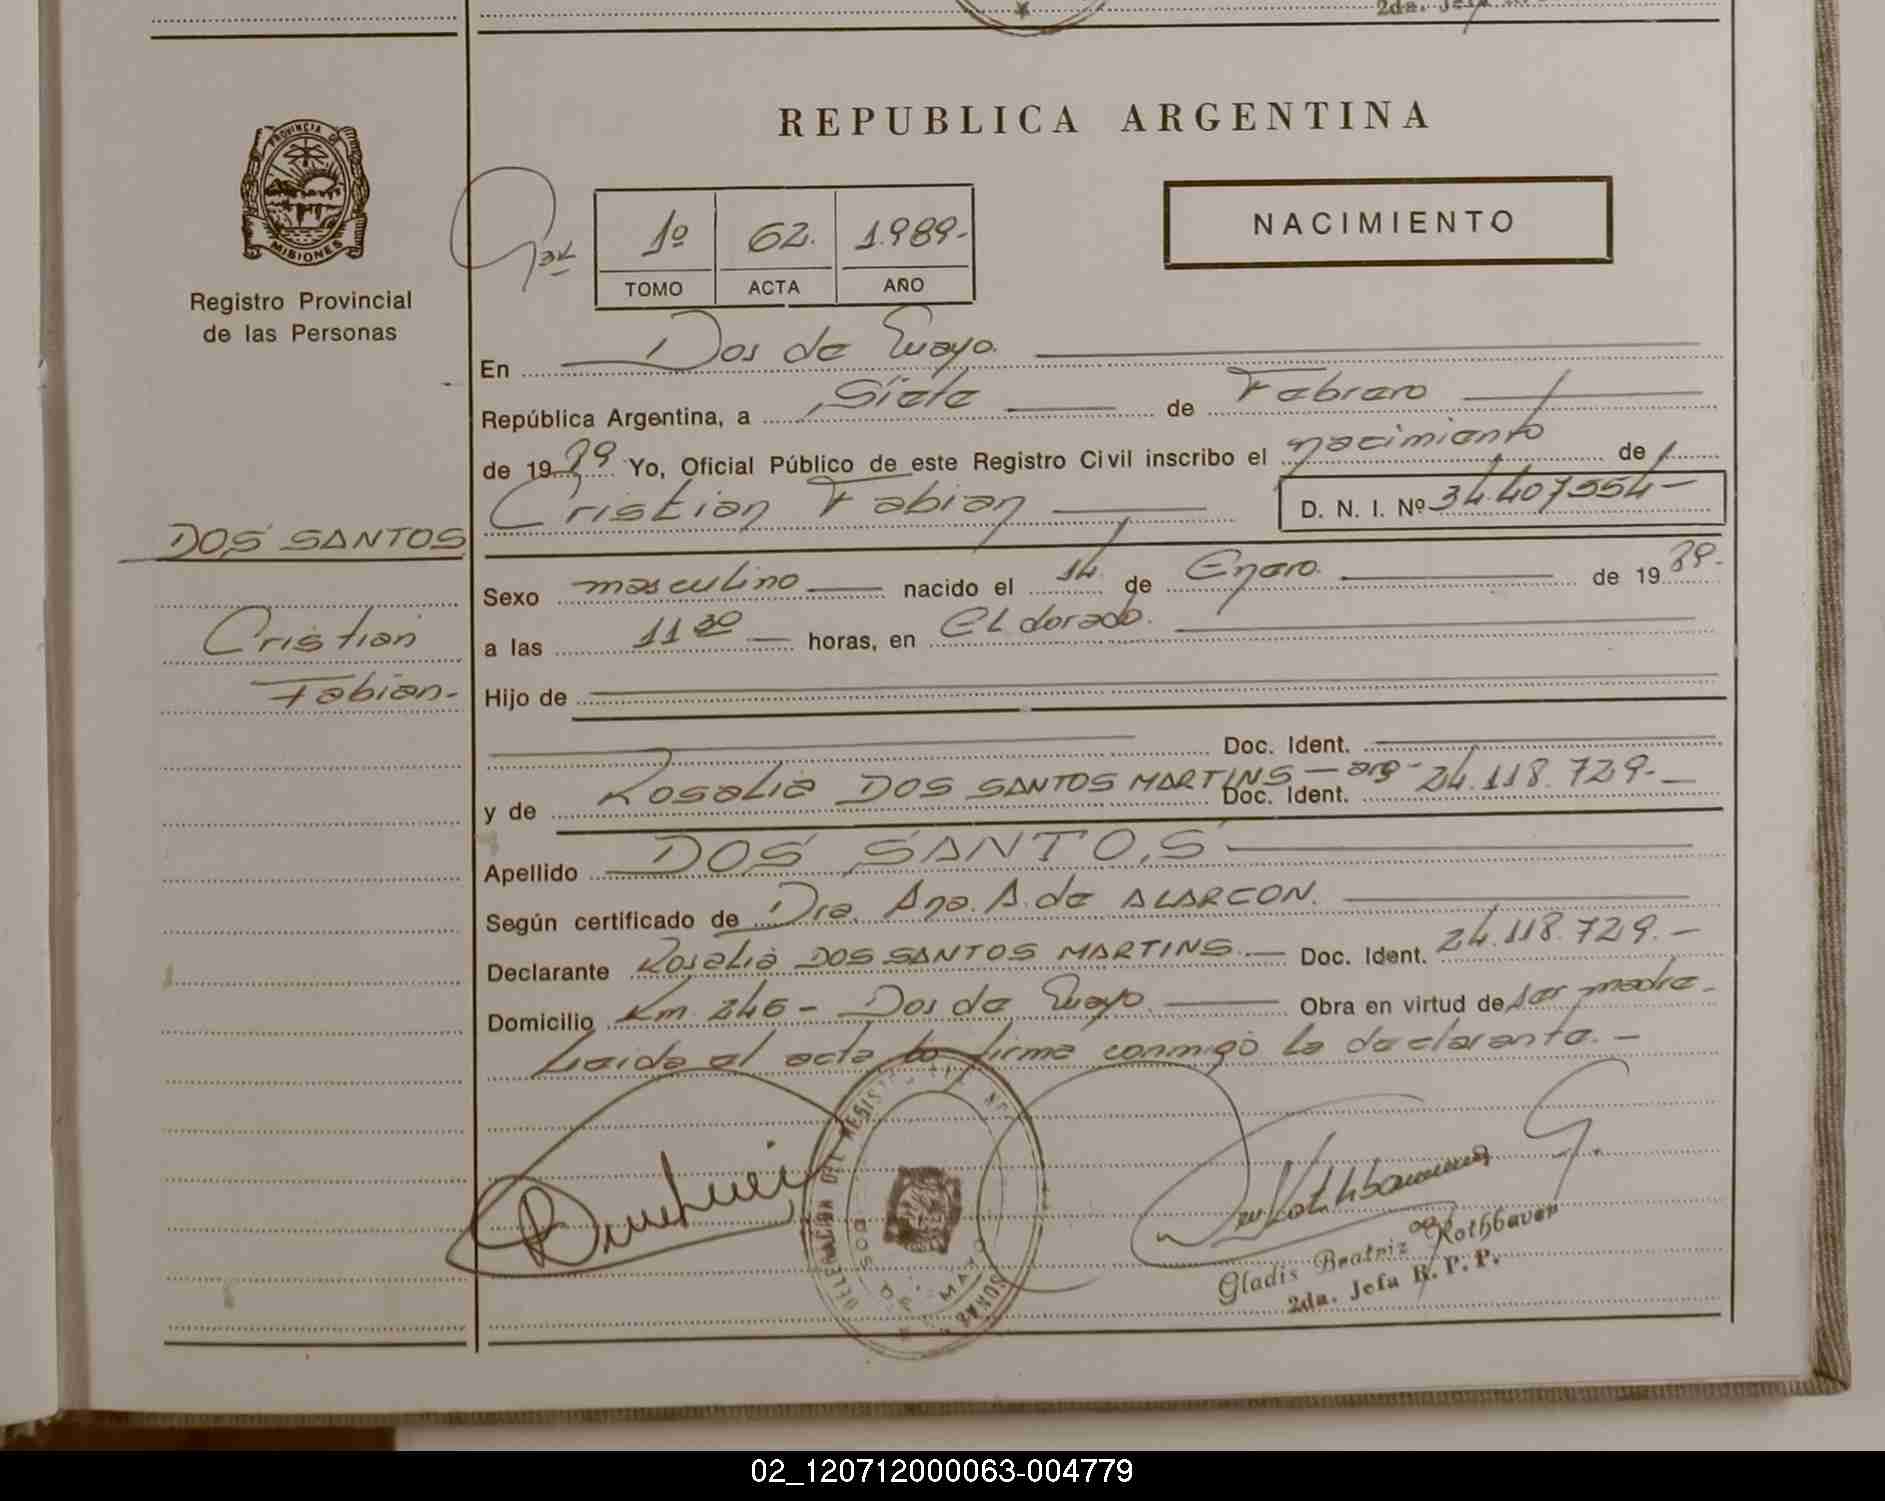 2da. Jefa
REPUBLICA ARGENTINA
PROVINCIA DE
MISIONES
Registro Provincial
de las Personas
1º 62. 1.989-
TOMO ACTA AÑO
NACIMIENTO
En Dos de Mayo.
República Argentina, a Siete de Febrero
de 1989 Yo, Oficial Público de este Registro Civil inscribo el nacimiento de
Cristian Fabian D. N. I. Nº 34.407554-
DOS SANTOS
Cristian
Fabian-
Sexo masculino nacido el 14 de Enero de 1989-
a las 11 30 horas, en ELdorado.
Hijo de
Doc. Ident.
y de Rosalia DOS SANTOS MARTINS - arg - Doc. Ident. 24.118.729-
Apellido DOS SANTOS
Según certificado de Dra. Ana. A. de ALARCON.
Declarante Rosalia DOS SANTOS MARTINS.- Doc. Ident. 24.118.729.-
Domicilio Km. 246 - Dos de Mayo. Obra en virtud de ser madre-
Leida el acta la firma conmigo la declarante.-
DELEGACION DEL REGISTRO
DOS DE MAYO
Gladis Beatriz Rothbauer
2da. Jefa R. P. P.
02_120712000063-004779